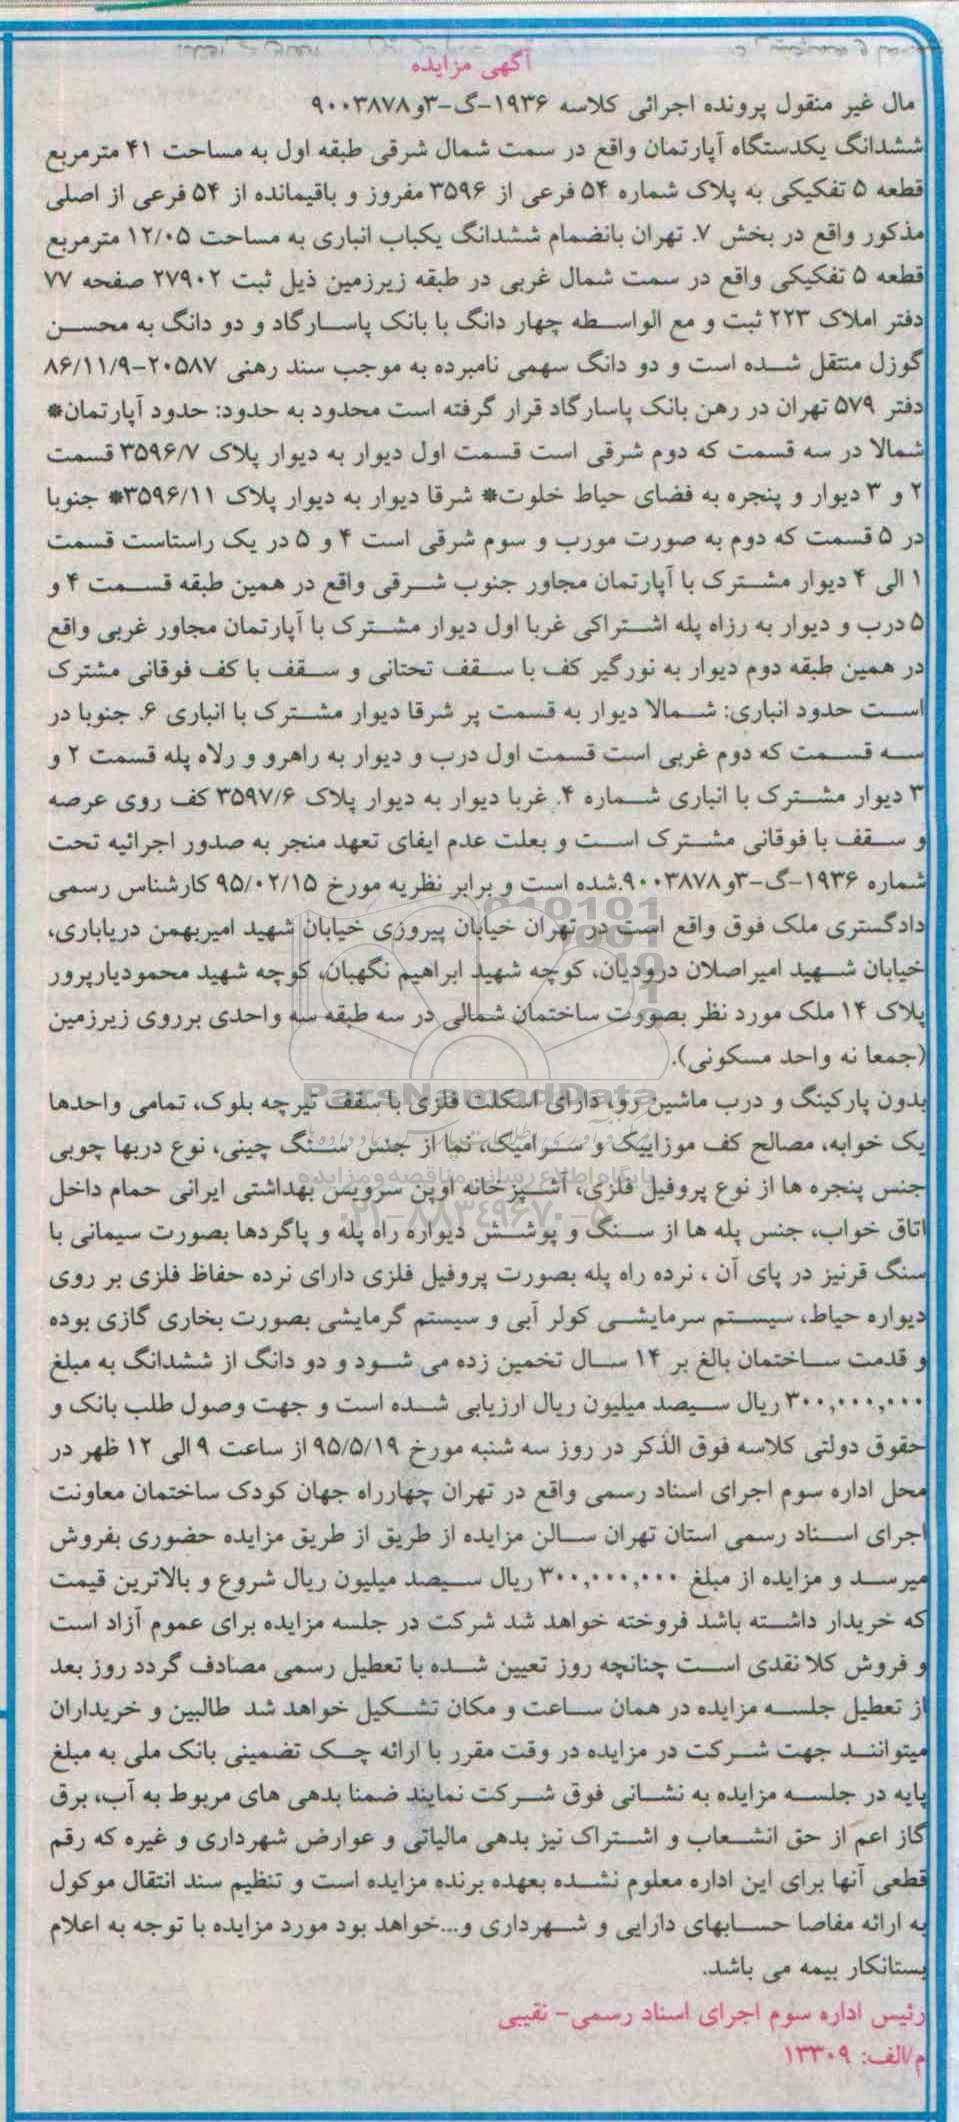 آگهی مزایده
مال غیر منقول پرونده اجرائی کلاسه ۱۹۳۶-گ-۳و۹۰۰۳۸۷۸
ششدانگ یکدستگاه آپارتمان واقع در سمت شمال شرقی طبقه اول به مساحت ۴۱ مترمربع
قطعه ۵ تفکیکی به پلاک شماره ۵۴ فرعی از ۳۵۹۶ مفروز و باقیمانده از ۵۴ فرعی از اصلی
مذکور واقع در بخش ۷. تهران بانضمام ششدانگ یکباب انباری به مساحت ۱۲/۰۵ مترمربع
قطعه ۵ تفکیکی واقع در سمت شمال غربی در طبقه زیرزمین ذیل ثبت ۲۷۹۰۲ صفحه ۷۷
دفتر املاک ۲۲۳ ثبت و مع الواسطه چهار دانگ با بانک پاسارگاد و دو دانگ به محسن
گوزل منتقل شده است و دو دانگ سهمی نامبرده به موجب سند رهنی ۲۰۵۸۷-۸۶/۱۱/۹
دفتر ۵۷۹ تهران در رهن بانک پاسارگاد قرار گرفته است محدود به حدود: حدود آپارتمان*
شمالا در سه قسمت که دوم شرقی است قسمت اول دیوار به دیوار پلاک ۳۵۹۶/۷ قسمت
۲ و ۳ دیوار و پنجره به فضای حیاط خلوت* شرقا دیوار به دیوار پلاک ۳۵۹۶/۱۱* جنوبا
در ۵ قسمت که دوم به صورت مورب و سوم شرقی است ۴ و ۵ در یک راستاست قسمت
۱ الی ۴ دیوار مشترک با آپارتمان مجاور جنوب شرقی واقع در همین طبقه قسمت ۴ و
۵ درب و دیوار به رزاه پله اشتراکی غربا اول دیوار مشترک با آپارتمان مجاور غربی واقع
در همین طبقه دوم دیوار به نورگیر کف با سقف تحتانی و سقف با کف فوقانی مشترک
است حدود انباری: شمالا دیوار به قسمت پر شرقا دیوار مشترک با انباری ۶. جنوبا در
سه قسمت که دوم غربی است قسمت اول درب و دیوار به راهرو و رلاه پله قسمت ۲ و
۳ دیوار مشترک با انباری شماره ۴. غربا دیوار به دیوار پلاک ۳۵۹۷/۶ کف روی عرصه
و سقف با فوقانی مشترک است و بعلت عدم ایفای تعهد منجر به صدور اجرائیه تحت
شماره ۱۹۳۶-گ-۳و۹۰۰۳۸۷۸.شده است و برابر نظریه مورخ ۹۵/۰۲/۱۵ کارشناس رسمی
دادگستری ملک فوق واقع است در تهران خیابان پیروزی خیابان شهید امیربهمن دریاباری،
خیابان شهید امیراصلان درودیان، کوچه شهید ابراهیم نگهبان، کوچه شهید محمودیارپرور
پلاک ۱۴ ملک مورد نظر بصورت ساختمان شمالی در سه طبقه سه واحدی برروی زیرزمین
(جمعا نه واحد مسکونی).
ParsNamadData
بدون پارکینگ و درب ماشین رو، دارای اسکلت فلزی با سقف تیرچه بلوک، تمامی واحدها
یک خوابه، مصالح کف موزاییک و سرامیک، نما از جنس سنگ چینی، نوع دربها چوبی
پایگاه اطلاع رسانی مناقصه و مزایده
جنس پنجره ها از نوع پروفیل فلزی، آشپزخانه اوپن سرویس بهداشتی ایرانی حمام داخل
۰۲۱-۸۸۳۴۹۶۷۰-۵
اتاق خواب، جنس پله ها از سنگ و پوشش دیواره راه پله و پاگردها بصورت سیمانی با
سنگ قرنیز در پای آن ، نرده راه پله بصورت پروفیل فلزی دارای نرده حفاظ فلزی بر روی
دیواره حیاط، سیستم سرمایشی کولر آبی و سیستم گرمایشی بصورت بخاری گازی بوده
و قدمت ساختمان بالغ بر ۱۴ سال تخمین زده می شود و دو دانگ از ششدانگ به مبلغ
۳۰۰,۰۰۰,۰۰۰ ریال سیصد میلیون ریال ارزیابی شده است و جهت وصول طلب بانک و
حقوق دولتی کلاسه فوق الذکر در روز سه شنبه مورخ ۹۵/۵/۱۹ از ساعت ۹ الی ۱۲ ظهر در
محل اداره سوم اجرای اسناد رسمی واقع در تهران چهارراه جهان کودک ساختمان معاونت
اجرای اسناد رسمی استان تهران سالن مزایده از طریق از طریق مزایده حضوری بفروش
میرسد و مزایده از مبلغ ۳۰۰,۰۰۰,۰۰۰ ریال سیصد میلیون ریال شروع و بالاترین قیمت
که خریدار داشته باشد فروخته خواهد شد شرکت در جلسه مزایده برای عموم آزاد است
و فروش کلا نقدی است چنانچه روز تعیین شده با تعطیل رسمی مصادف گردد روز بعد
از تعطیل جلسه مزایده در همان ساعت و مکان تشکیل خواهد شد طالبین و خریداران
میتوانند جهت شرکت در مزایده در وقت مقرر با ارائه چک تضمینی بانک ملی به مبلغ
پایه در جلسه مزایده به نشانی فوق شرکت نمایند ضمنا بدهی های مربوط به آب، برق
گاز اعم از حق انشعاب و اشتراک نیز بدهی مالیاتی و عوارض شهرداری و غیره که رقم
قطعی آنها برای این اداره معلوم نشده بعهده برنده مزایده است و تنظیم سند انتقال موکول
به ارائه مفاصا حسابهای دارایی و شهرداری و...خواهد بود مورد مزایده با توجه به اعلام
بستانکار بیمه می باشد.
رئیس اداره سوم اجرای اسناد رسمی- نقیبی
م/الف: ۱۳۳۰۹